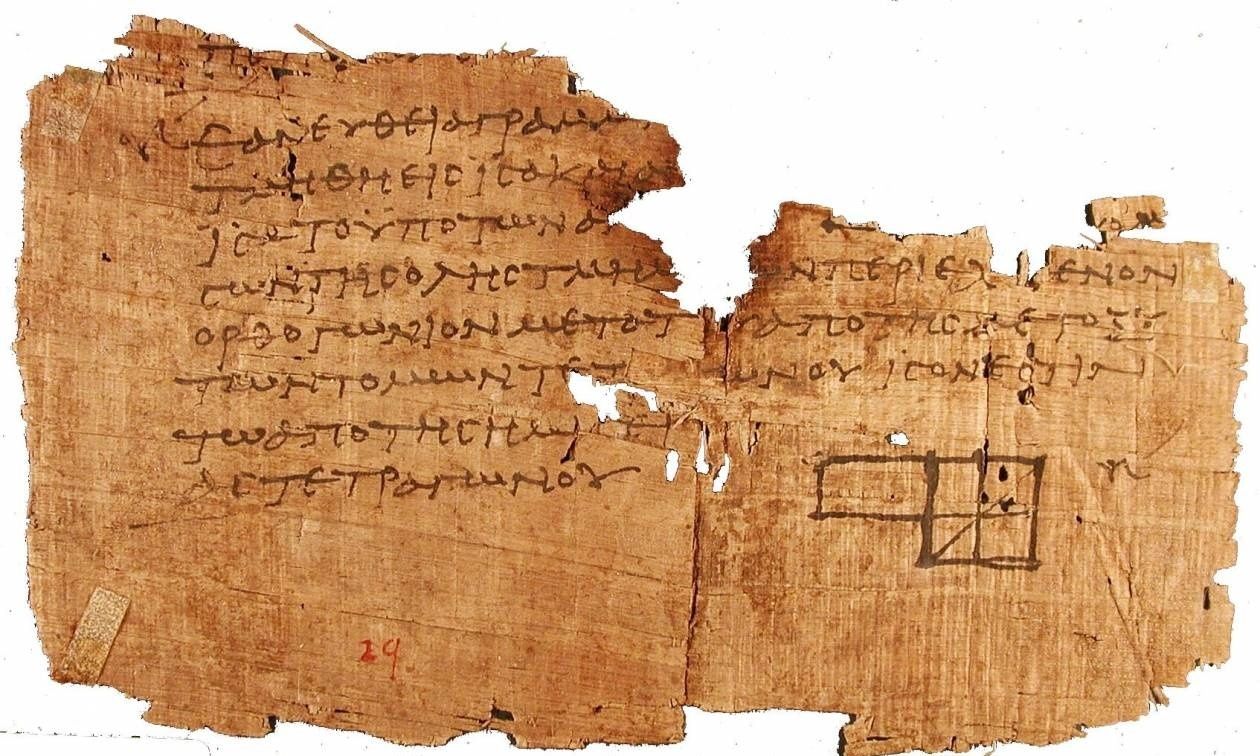 ΕΑΝΕΥΘΕΙΑΓΡΑΜΜ
ΤΜΗΘΗΕΙΣΙΣΑΚΑΙΑ
ΙΣΑΤΟΥΠΟΤΩΝΑ
ΣΩΝΤΗΣΟΛΗΣΤΜΗΜ ΩΝΠΕΡΙΕΧ ΜΕΝΟΝ
ΟΡΘΟΓΩΝΙΟΝΜΕΤΑΤ ΥΑΠΟΤΗΣΜΕΤΟΞΥ
ΤΩΝΤΟΜΩΝΤΕΤ ΩΝΟΥ ΙΣΟΝΕΣΤΙΝ
ΤΩΑΠΟΤΗΣΗΜΙΣΕΙ
ΑΣΤΕΤΡΑΓΩΝΟΥ
29